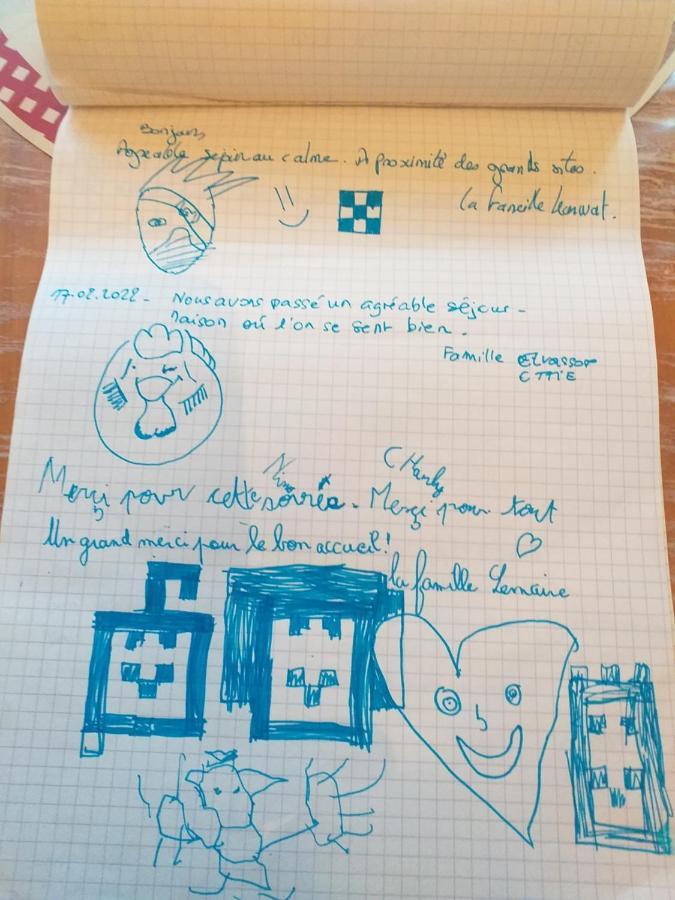 Bonjour,
Agréable séjour au calme. A proximité des grands sites.
La famille
17.02.2022 - Nous avons passé un agréable séjour -
Maison où l'on se sent bien.
Famille
Nino
CHarly
Merçi pour cette soirée. Merçi pour tout
Un grand merci pour le bon accueil!
la famille Lemaire